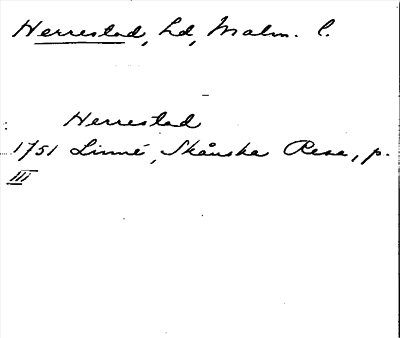 Herrestad, Ld, Malm. l.
Herrestad
1751 Linné, Skånska Resa, p.
III